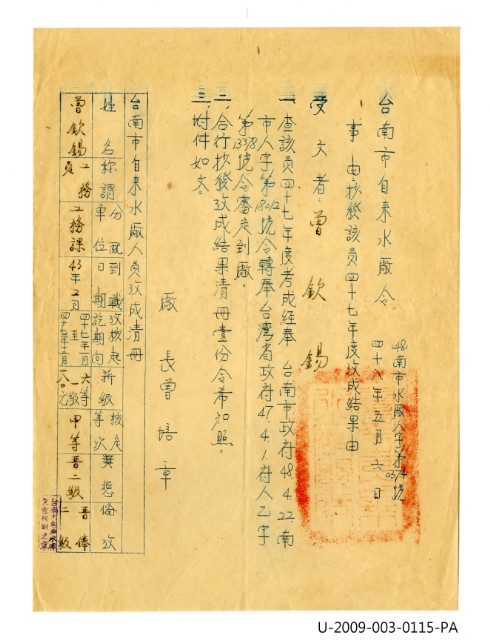 台南市自來水廠令
48南市水廠人字第0374號
四十八年五月六日
事由：抄發該員四十七年度攷成結果由
受文者：曾欽錫
一、查該員四十七年度考成經奉 台南市政府48.4.22南
市人字第18012號令轉奉台灣省政府47.4.1府人乙字
第1338號令審定到廠。
二、合行抄發攷成結果清冊壹份令希知照。
三、附件如文。
廠長曾培章
台南市自來水廠人員攷成清冊
姓名 稱謂 單位 到職日期 攷核起訖期間 薪級 核定等次 獎懲 備攷
曾欽錫 工務員 工務課 43年2月 四十七年一月至四十七年十二月 甲等 晉二級 晉俸二級
U-2009-003-0115-PA